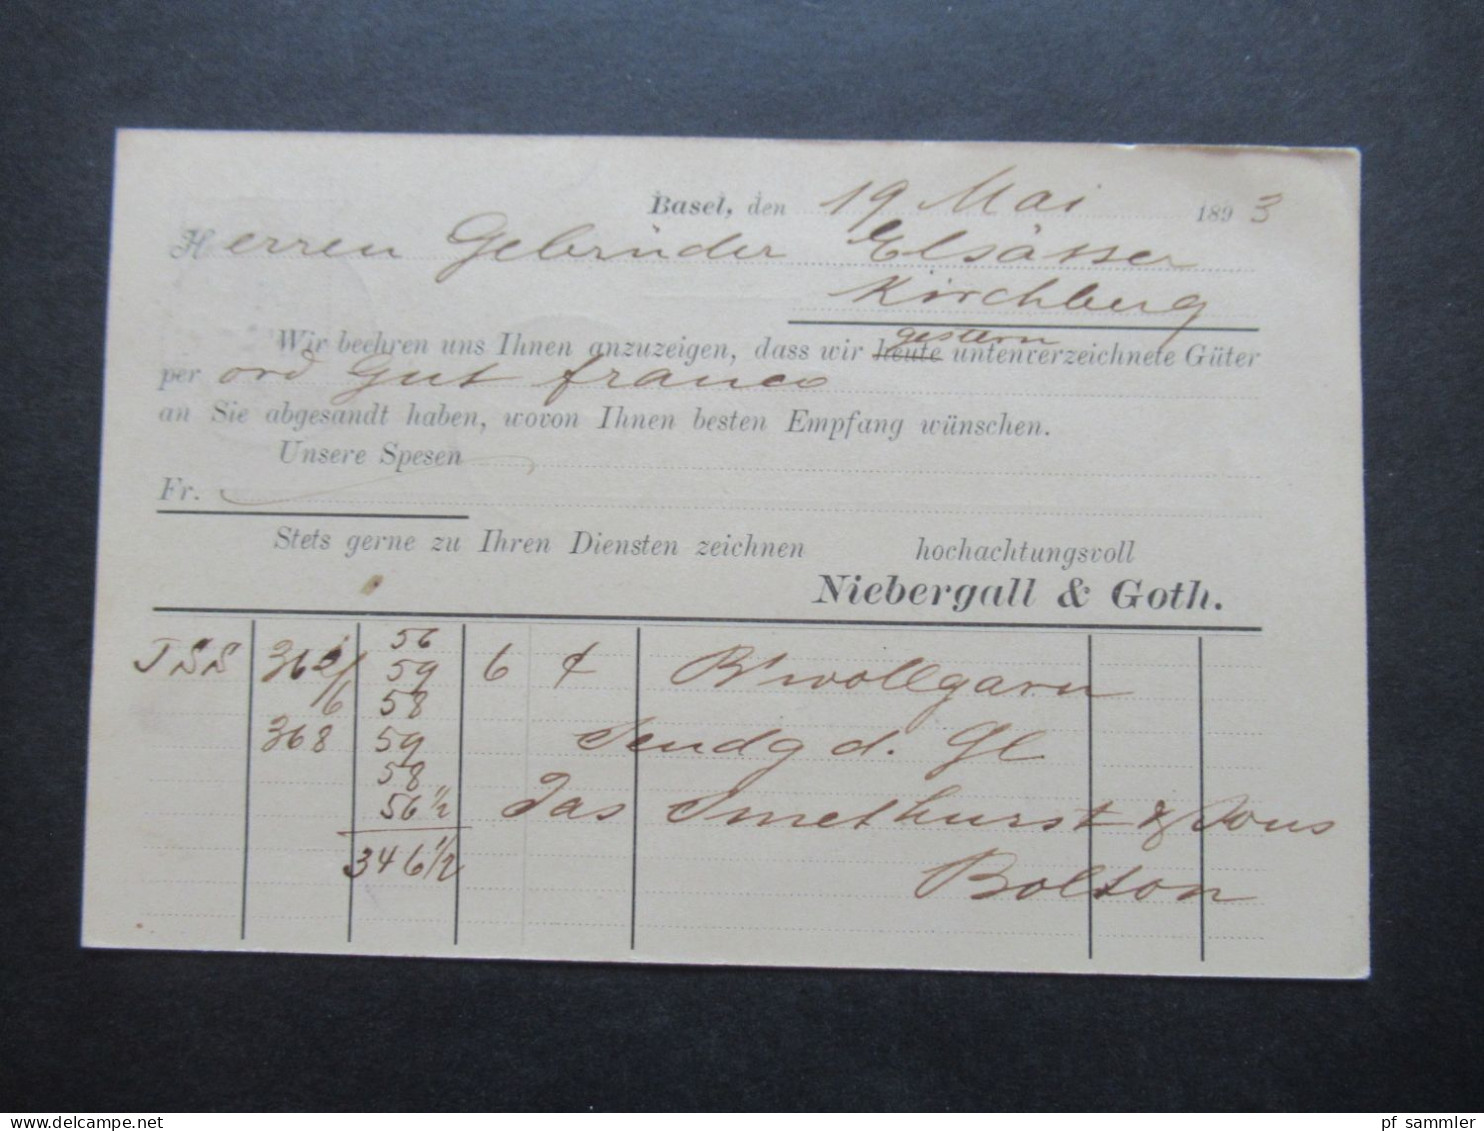 Basel, den 19 Mai 1893
Herren Gebrüder Elsässer
Kirchberg
gestern
Wir beehren uns Ihnen anzuzeigen, dass wir heute untenverzeichnete Güter
per ord Gut franco
an Sie abgesandt haben, wovon Ihnen besten Empfang wünschen.
Unsere Spesen
Fr.
Stets gerne zu Ihren Diensten zeichnen hochachtungsvoll
Niebergall & Goth.
56
JSS 59 6 B'wollgarn
6 58
368 59 Sendg d. Gl
58
56 1/2 Jas Smethurst & Sons
346 1/2 Bolton
pf_sammler
www.delcampe.net